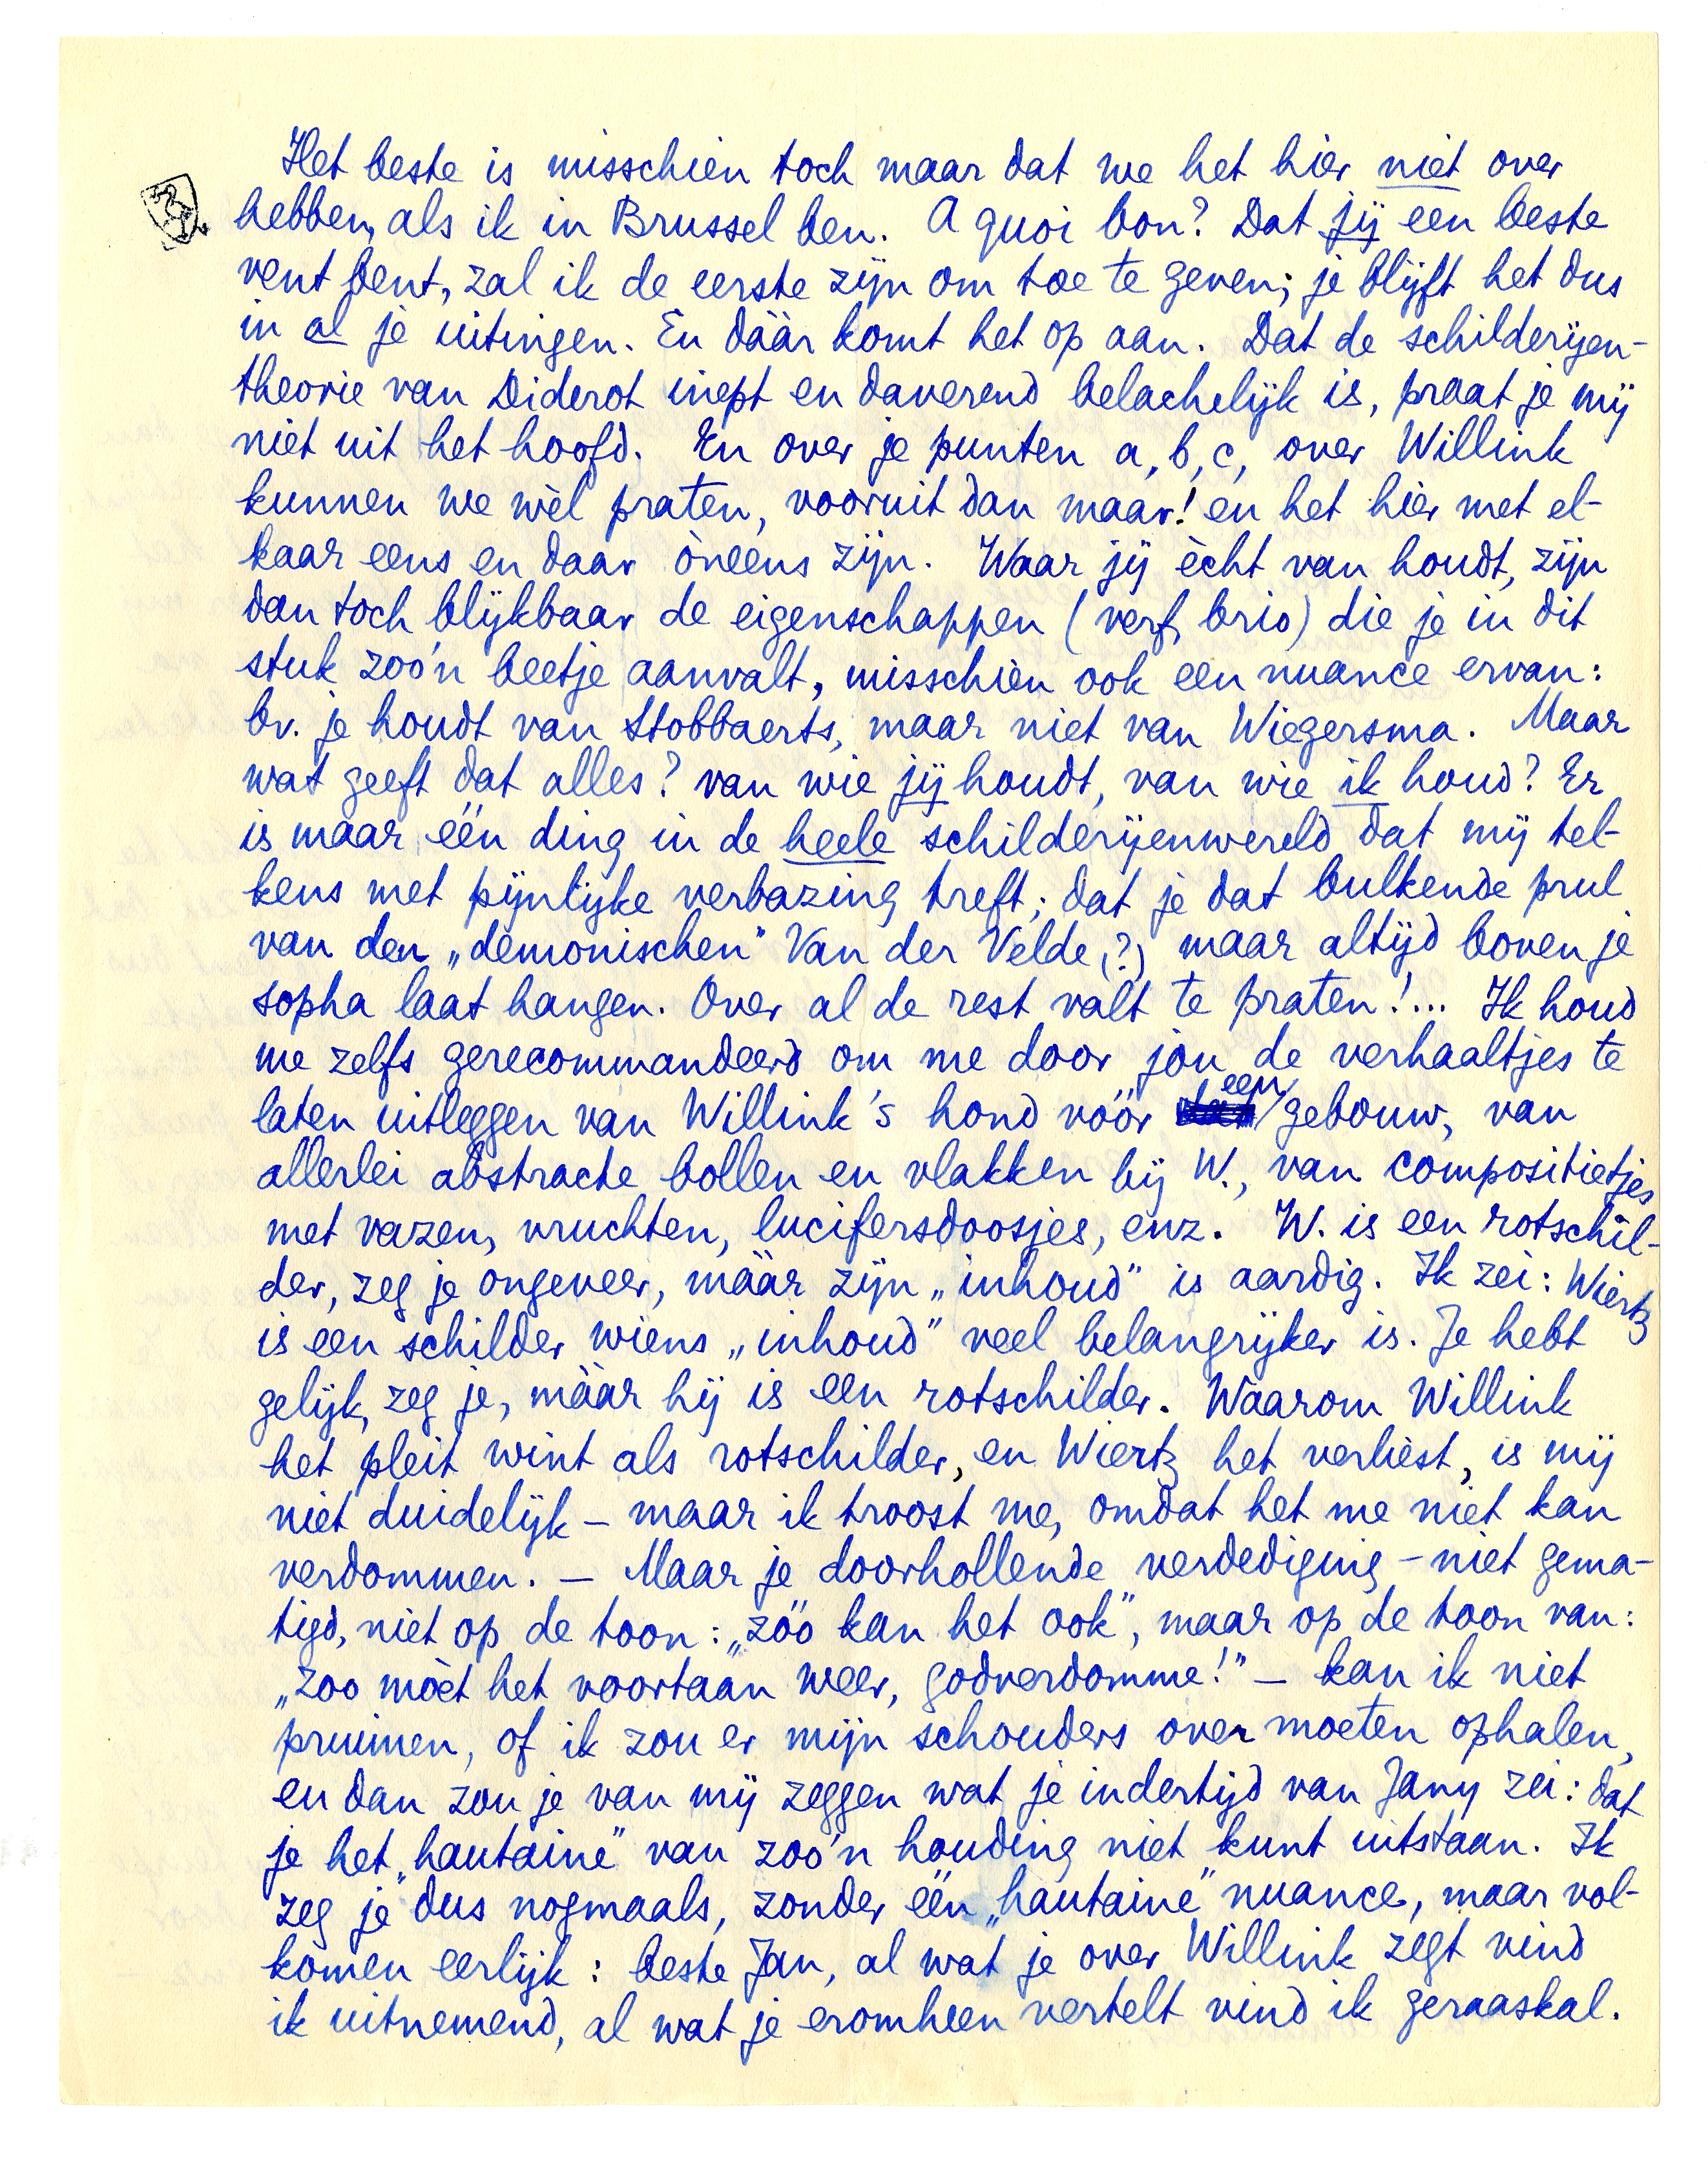 Het beste is misschien toch maar dat we het hier niet over
hebben, als ik in Brussel ben. A quoi bon? Dat jij een beste
vent bent, zal ik de eerste zijn om toe te geven; je blijft het dus
in al je uitingen. En dáár komt het op aan. Dat de schilderijen-
theorie van Diderot inept en daverend belachelijk is, praat je mij
niet uit het hoofd. En over je punten a, b, c, over Willink
kunnen we wèl praten, vooruit dan maar! en het hier met el-
kaar eens en daar òneens zijn. Waar jij ècht van houdt, zijn
dan toch blijkbaar de eigenschappen (verf, brio) die je in dit
stuk zoo'n beetje aanvalt, misschien ook een nuance ervan:
bv. je houdt van Stobbaerts, maar niet van Wiegersma. Maar
wat geeft dat alles? van wie jij houdt, van wie ik houd? Er
is maar één ding in de heele schilderijenwereld dat mij tel-
kens met pijnlijke verbazing treft; dat je dat bulkende prul
van den „demonischen" Van der Velde (?) maar altijd boven je
sopha laat hangen. Over al de rest valt te praten!... Ik houd
me zelfs gerecommandeerd om me door jou de verhaaltjes te
laten uitleggen van Willink's hond vóór een gebouw, van
allerlei abstracte bollen en vlakken bij W., van compositietjes
met vazen, vruchten, lucifersdoosjes, enz. W. is een rotschil-
der, zeg je ongeveer, máár zijn „inhoud" is aardig. Ik zei: Wiertz
is een schilder wiens „inhoud" veel belangrijker is. Je hebt
gelijk, zeg je, máár hij is een rotschilder. Waarom Willink
het pleit wint als rotschilder, en Wiertz het verliest, is mij
niet duidelijk – maar ik troost me, omdat het me niet kan
verdommen. – Maar je doorhollende verdediging – niet gema-
tigd, niet op de toon: „zóó kan het ook", maar op de toon van:
„zoo mòet het voortaan weer, godverdomme!" – kan ik niet
pruimen, of ik zou er mijn schouders over moeten ophalen,
en dan zou je van mij zeggen wat je indertijd van Jany zei: dat
je het „hautaine" van zoo'n houding niet kunt uitstaan. Ik
zeg je dus nogmaals, zonder één „hautaine" nuance, maar vol-
komen eerlijk: beste Jan, al wat je over Willink zegt vind
ik uitnemend, al wat je eromheen vertelt vind ik geraaskal.